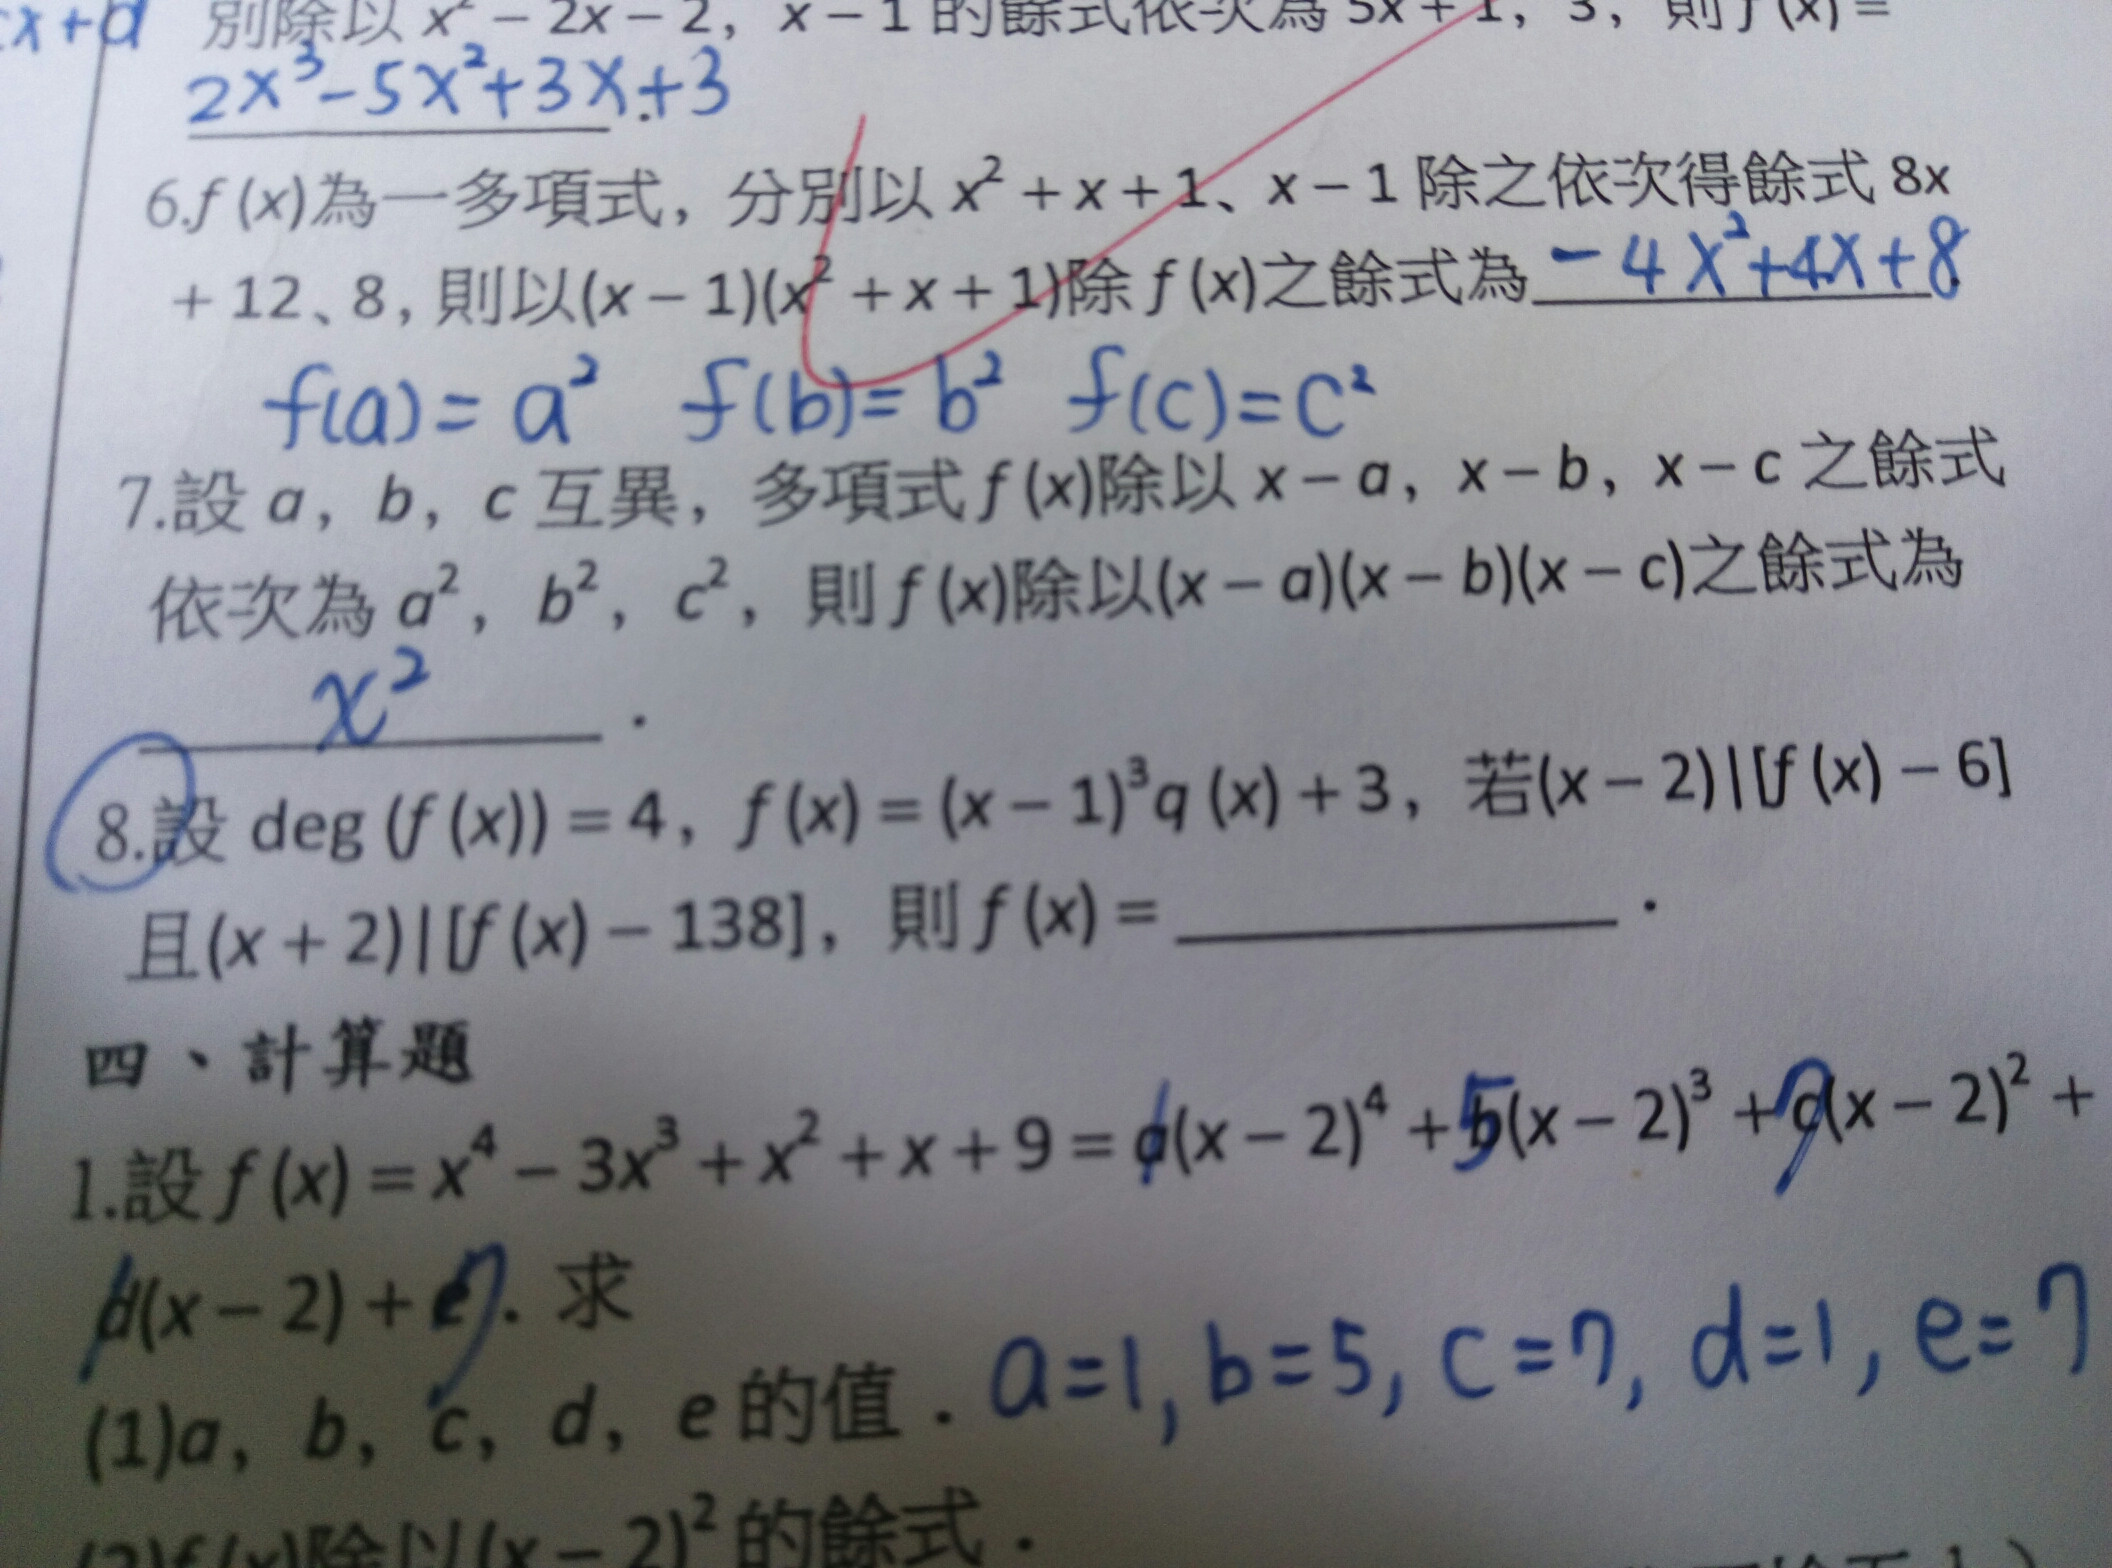 x+d 別除以 x² − 2x − 2，x − 1 的餘式依次為 5x + 1，3，則 f (x) =
2x³-5x²+3x+3 .
6.f (x)為一多項式，分別以 x² + x + 1、x − 1 除之依次得餘式 8x
+ 12、8，則以(x − 1)(x² + x + 1)除 f (x)之餘式為 -4x²+4x+8 .
f(a)=a² f(b)=b² f(c)=c²
7.設 a，b，c 互異，多項式 f (x)除以 x − a，x − b，x − c 之餘式
依次為 a²，b²，c²，則 f (x)除以(x − a)(x − b)(x − c)之餘式為
x² ．
8.設 deg (f (x)) = 4，f (x) = (x − 1)³q (x) + 3，若(x − 2)|[f (x) − 6]
且(x + 2)|[f (x) − 138]，則 f (x) = ．
四、計算題
1.設 f (x) = x⁴ − 3x³ + x² + x + 9 = a(x − 2)⁴ + b(x − 2)³ + c(x − 2)² +
d(x − 2) + e．求
(1)a，b，c，d，e 的值．a=1, b=5, c=7, d=1, e=7
(2)f (x)除以(x − 2)² 的餘式．